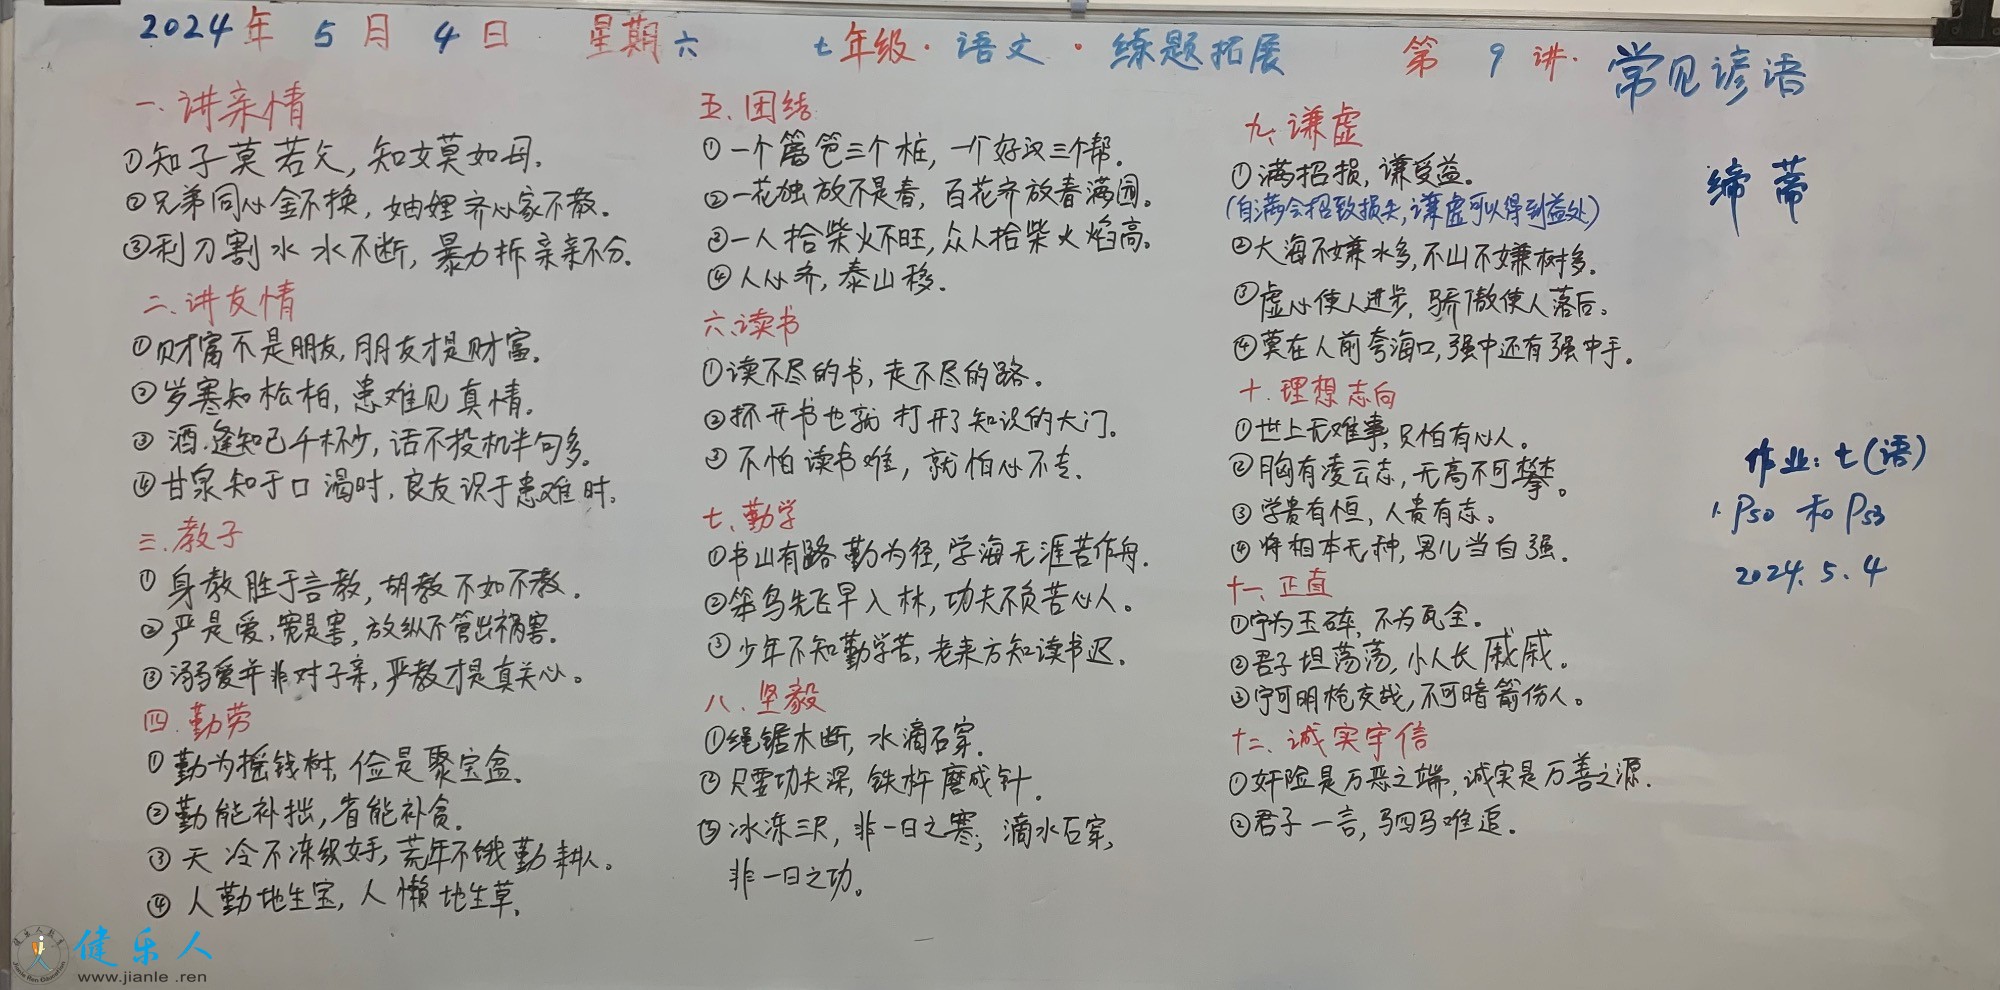 2024年 5月 4日 星期六 七年级·语文·练题拓展 第 9 讲· 常见谚语
一.讲亲情
①知子莫若父,知女莫如母.
②兄弟同心金不换,妯娌齐心家不散.
③利刀割水水不断,暴力拆亲亲不分.
二.讲友情
①财富不是朋友,朋友才是财富.
②岁寒知松柏,患难见真情.
③酒逢知己千杯少,话不投机半句多.
④甘泉知于口渴时,良友识于患难时.
三.教子
①身教胜于言教,胡教不如不教.
②严是爱,宽是害,放纵不管出祸害.
③溺爱并非对子亲,严教才是真关心。
四.勤劳
①勤为摇钱树,俭是聚宝盆.
②勤能补拙,省能补贫.
③天冷不冻织女手,荒年不饿勤耕人。
④人勤地生宝,人懒地生草.
五.团结
①一个篱笆三个桩,一个好汉三个帮.
②一花独放不是春,百花齐放春满园。
③一人拾柴火不旺,众人拾柴火焰高.
④人心齐,泰山移.
六.读书
①读不尽的书,走不尽的路.
②打开书也就打开了知识的大门.
③不怕读书难,就怕心不专.
七、勤学
①书山有路勤为径,学海无涯苦作舟.
②笨鸟先飞早入林,功夫不负苦心人。
③少年不知勤学苦,老来方知读书迟.
八.坚毅
①绳锯木断,水滴石穿.
②只要功夫深,铁杵磨成针.
③冰冻三尺,非一日之寒;滴水石穿,
非一日之功。
九、谦虚
①满招损,谦受益。
(自满会招致损失,谦虚可以得到益处)
②大海不嫌水多,不山不嫌树多.
③虚心使人进步,骄傲使人落后。
④莫在人前夸海口,强中还有强中手.
十.理想志向
①世上无难事,只怕有心人.
②胸有凌云志,无高不可攀。
③学贵有恒,人贵有志。
④将相本无种,男儿当自强.
十一、正直
①宁为玉碎,不为瓦全.
②君子坦荡荡,小人长戚戚.
③宁可明枪交战,不可暗箭伤人。
十二、诚实守信
①奸险是万恶之端,诚实是万善之源.
②君子一言,驷马难追.
缔 蒂
作业:七(语)
1. P50 和 P53
2024.5.4
健乐人
www.jianle.ren